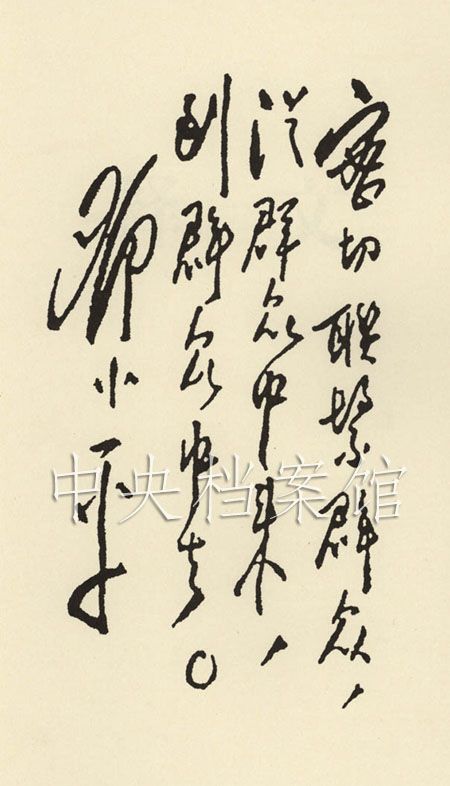 密切联繋群众，
从群众中来，
到群众中去。
邓小平
中央档案馆